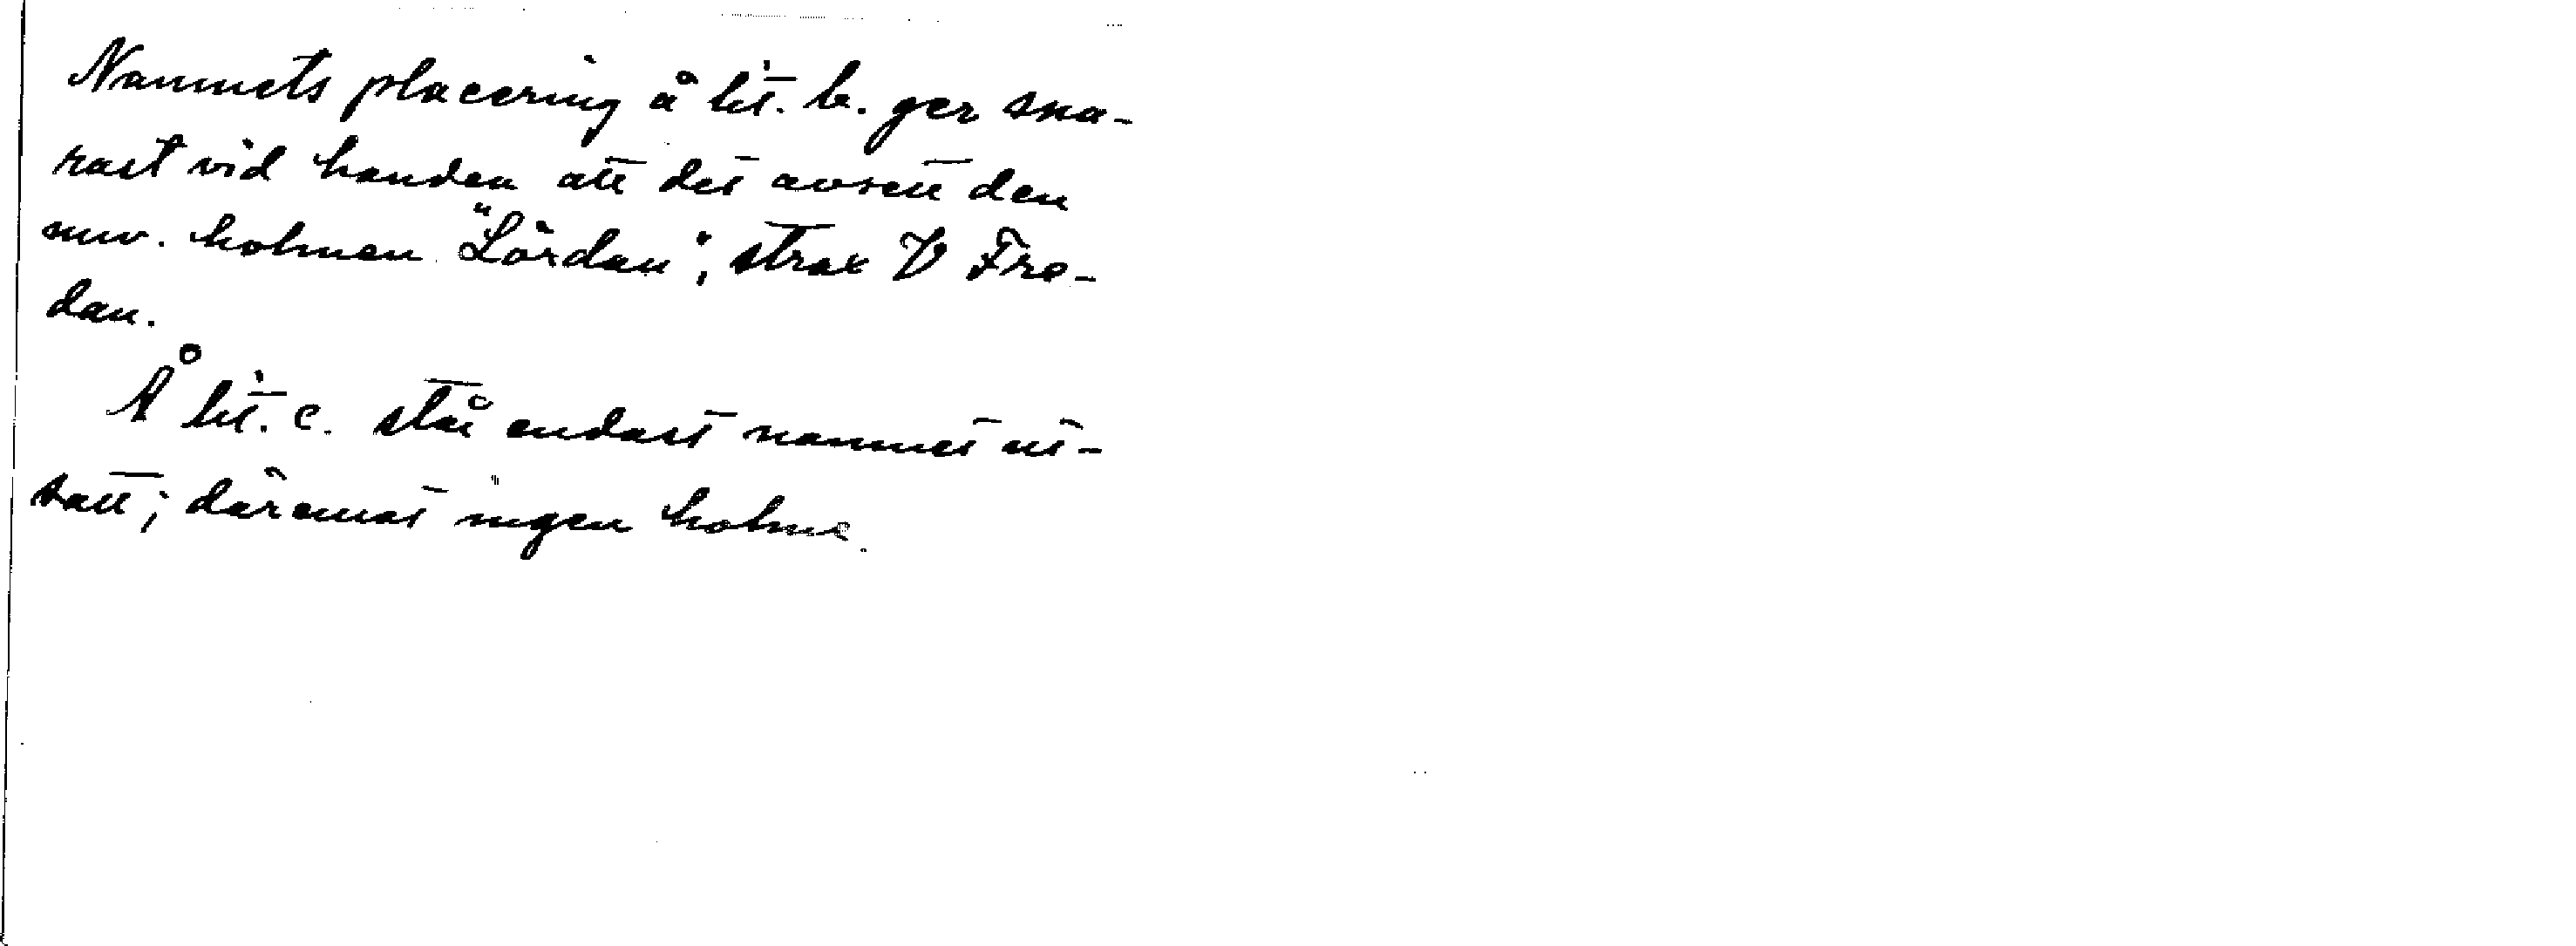 Namnets placering å lit. b. ger sna-
rast vid handen att det avsett den
nuv. holmen "Lördan", strax V Fre-
dan.
Å lit. c. står endast namnet ut-
satt; däremot ingen holme.